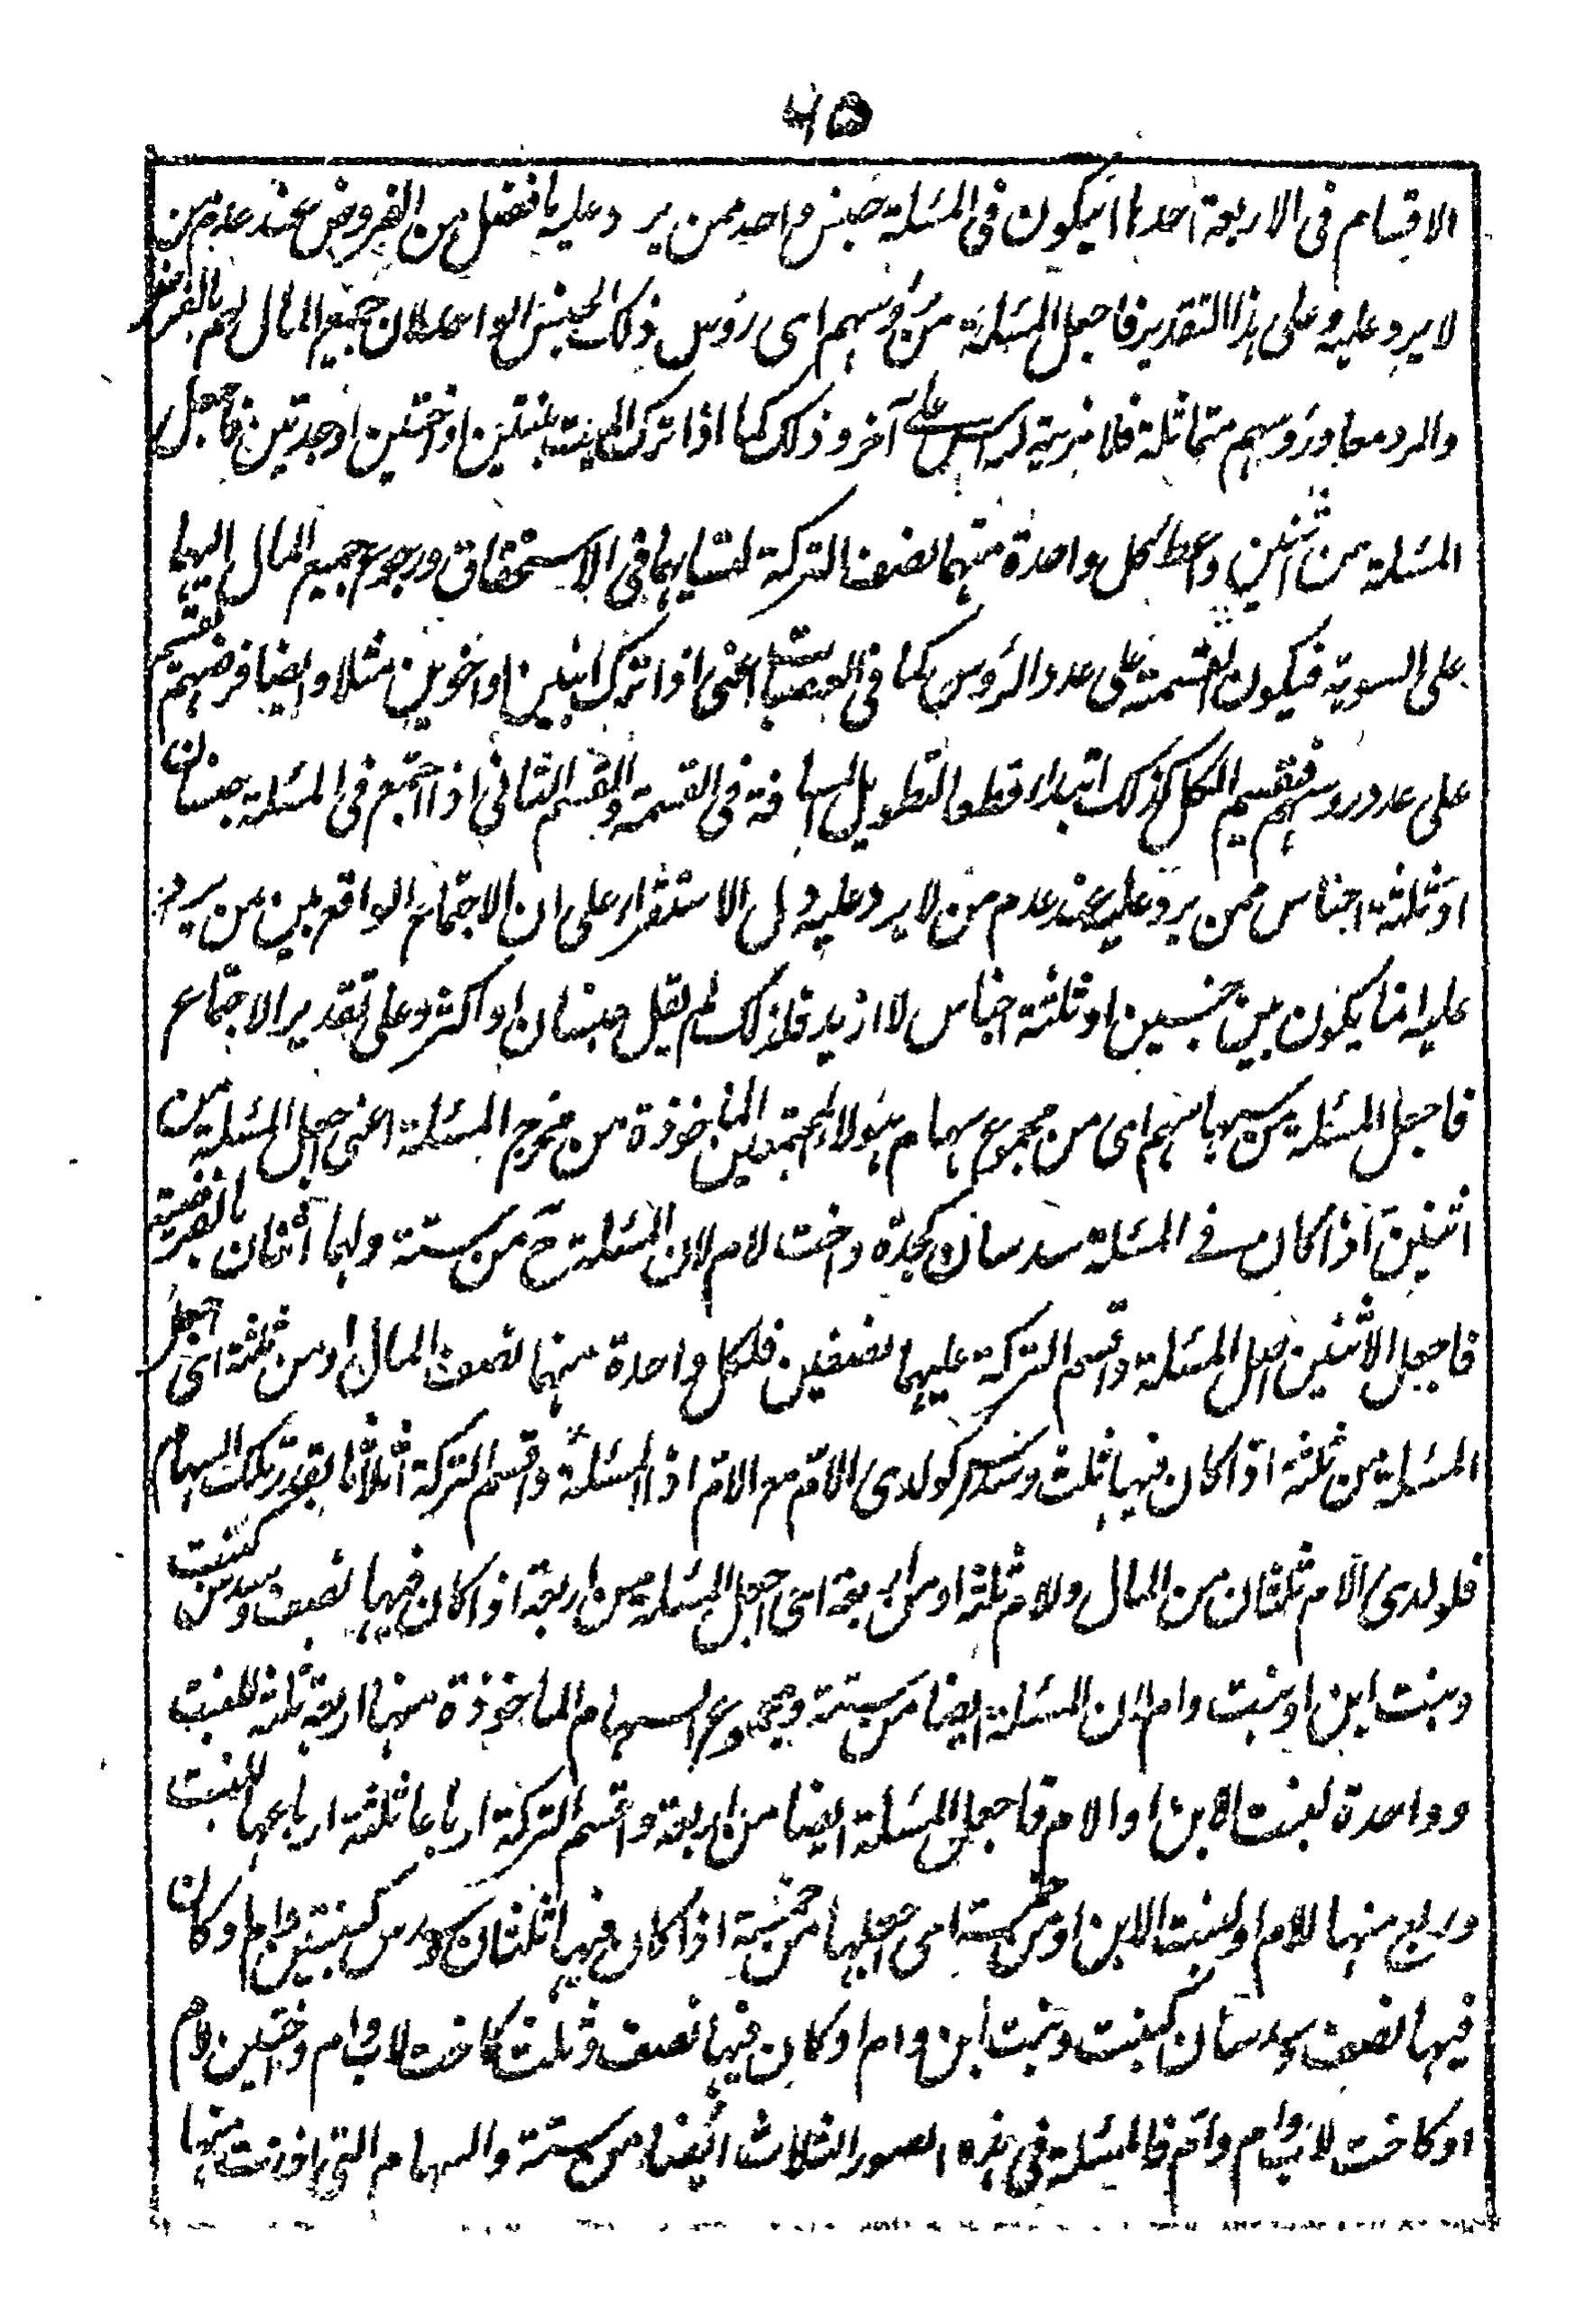 ٦٥
الاقسام فى الاربعة احدها انيكون فى المسئلة جنس واحد ممن يرد عليه ما فضل من الفروض عند عدم من
لا يرد عليه وعلى هذا التقدير فاجعل المسئلة من رؤسهم اى رؤس ذلك الجنس الواحد لان جميع المال لهم بالفرض
والرد معا ورؤسهم متماثلة فلا مزية لراس على آخر وذلك كما اذا ترك الميت بنتين او اختين او جدتين فاجعل
المسئلة من اثنين واعط كل واحدة منهما نصف التركة لتساويهما فى الاستحقاق ورجوع جميع المال اليهما
على السوية فيكون القسمة على عدد الرؤس كما فى العصبات اعنى اذا ترك ابنين او اخوين مثلا وايضا فرضهم يقسم
على عدد رؤسهم فقسم الكل كذلك ابتداء قطعا لتطويل المسافة فى القسمة والقسم الثانى اذا اجتمع فى المسئلة جنسان
او ثلثة اجناس ممن يرد عليه عند عدم من لا يرد عليه دل الاستقراء على ان الاجتماع الواقع بين من يرد
عليه انما يكون بين جنسين او ثلثة اجناس لا ازيد فلذلك لم يقل جنسان او اكثر وعلى تقدير الاجتماع
فاجعل المسئلة من سهامهم اى من مجموع سهام هؤلاء المجتمعين الماخوذة من مخرج المسئلة اعنى اجعل المسئلة من
اثنين اذا كان فى المسئلة سدسان كجدة واخت لام لان المسئلة ح من ستة ولهما اثنان بالفريضة
فاجعل الاثنين اصل المسئلة وقسم التركة عليهما نصفين فلكل واحدة منهما نصف المال او من ثلثة اى اجعل
المسئلة من ثلثة اذا كان فيها ثلث وسدس كولدى الام مع الام اذ المسئلة وقسم التركة اثلاثا بقدر تلك السهام
فلولدى الام ثلثان من المال وللام ثلثه او من اربعة اى اجعل المسئلة من اربعة اذا كان فيها نصف وسدس كبنت
وبنت ابن او بنت وام لان المسئلة ايضا من ستة ومجموع السهام الماخوذة منها اربعة ثلثة للبنت
وواحدة لبنت الابن او الام فاجعل المسئلة ايضا من اربعة وقسم التركة ارباعا ثلثة ارباعها للبنت
وربع منها للام او لبنت الابن او من خمسة اى اجعلها من خمسة اذا كان فيها ثلثان وسدس كبنتين وام او كان
فيها نصف وسدسان كبنت وبنت ابن وام او كان فيها نصف وثلث كاخت لاب وام واختين لام
او كاخت لاب وام وام فالمسئلة فى هذه الصور الثلاث ايضا من ستة والسهام التى اخذت منها